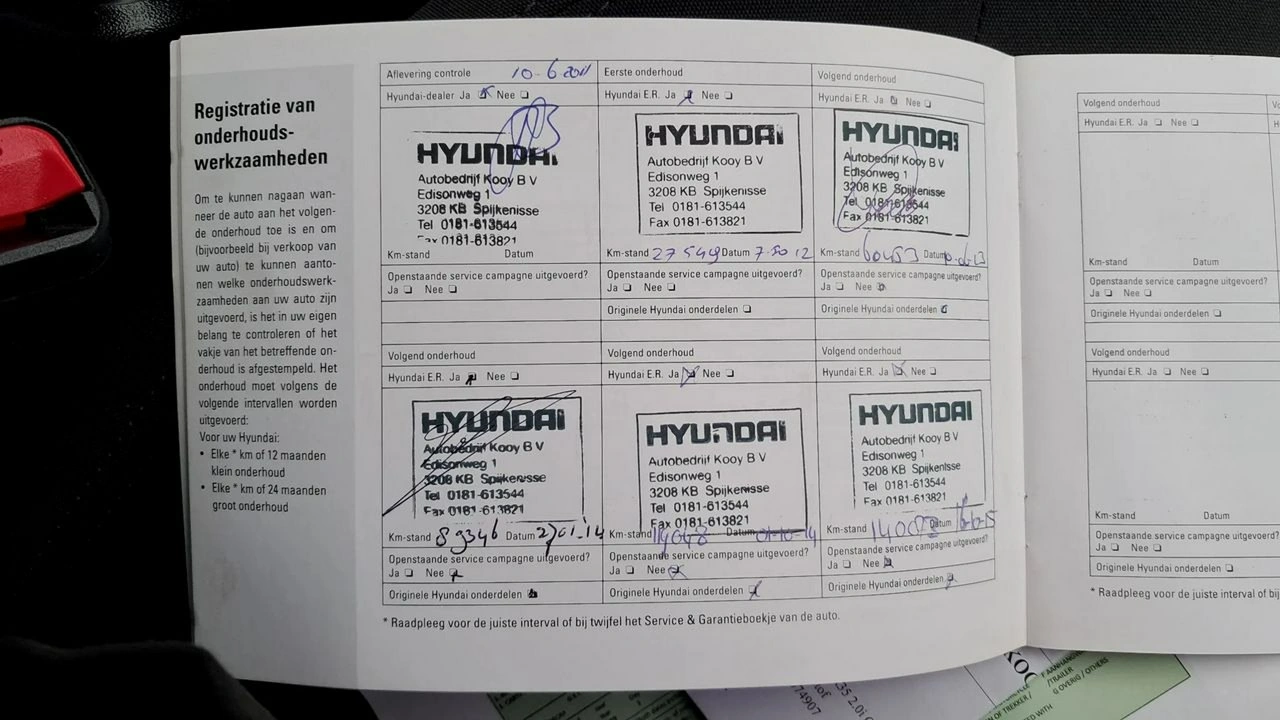 Registratie van
onderhouds-
werkzaamheden
Om te kunnen nagaan wan-
neer de auto aan het volgen-
de onderhoud toe is en om
(bijvoorbeeld bij verkoop van
uw auto) te kunnen aanto-
nen welke onderhoudswerk-
zaamheden aan uw auto zijn
uitgevoerd, is het in uw eigen
belang te controleren of het
vakje van het betreffende on-
derhoud is afgestempeld. Het
onderhoud moet volgens de
volgende intervallen worden
uitgevoerd:
Voor uw Hyundai:
• Elke * km of 12 maanden
klein onderhoud
• Elke * km of 24 maanden
groot onderhoud
Aflevering controle 10-6 2011
Hyundai-dealer Ja Nee
HYUNDAI
Autobedrijf Kooy B V
Edisonweg 1
3208 KB Spijkenisse
Tel 0181-613544
Fax 0181-613821
Km-stand Datum
Openstaande service campagne uitgevoerd?
Ja Nee
Eerste onderhoud
Hyundai E.R. Ja Nee
HYUNDAI
Autobedrijf Kooy B V
Edisonweg 1
3208 KB Spijkenisse
Tel 0181-613544
Fax 0181-613821
Km-stand 27549 Datum 12
Openstaande service campagne uitgevoerd?
Ja Nee
Originele Hyundai onderdelen
Volgend onderhoud
Hyundai E.R. Ja Nee
HYUNDAI
Autobedrijf Kooy B V
Edisonweg 1
3208 KB Spijkenisse
Tel 0181-613544
Fax 0181-613821
Km-stand 60453 Datum
Openstaande service campagne uitgevoerd?
Ja Nee
Originele Hyundai onderdelen
Volgend onderhoud
Hyundai E.R. Ja Nee
HYUNDAI
Autobedrijf Kooy B V
Edisonweg 1
3208 KB Spijkenisse
Tel 0181-613544
Fax 0181-613821
Km-stand 89346 Datum 27 01-14
Openstaande service campagne uitgevoerd?
Ja Nee
Originele Hyundai onderdelen
Volgend onderhoud
Hyundai E.R. Ja Nee
HYUNDAI
Autobedrijf Kooy B V
Edisonweg 1
3208 KB Spijkenisse
Tel 0181-613544
Fax 0181-613821
Km-stand Datum 01-10-14
Openstaande service campagne uitgevoerd?
Ja Nee
Originele Hyundai onderdelen
Volgend onderhoud
Hyundai E.R. Ja Nee
HYUNDAI
Autobedrijf Kooy B V
Edisonweg 1
3208 KB Spijkenisse
Tel 0181-613544
Fax 0181-613821
Km-stand Datum
Openstaande service campagne uitgevoerd?
Ja Nee
Originele Hyundai onderdelen
* Raadpleeg voor de juiste interval of bij twijfel het Service & Garantieboekje van de auto.
Volgend onderhoud
Hyundai E.R. Ja Nee
Km-stand Datum
Openstaande service campagne uitgevoerd?
Ja Nee
Originele Hyundai onderdelen
Volgend onderhoud
Hyundai E.R. Ja Nee
Km-stand Datum
Openstaande service campagne uitgevoerd?
Ja Nee
Originele Hyundai onderdelen
* Raadpleeg voor de juiste interval of bij
35 2.0i
74907
/TRAILER
OVERIG / OTHERS